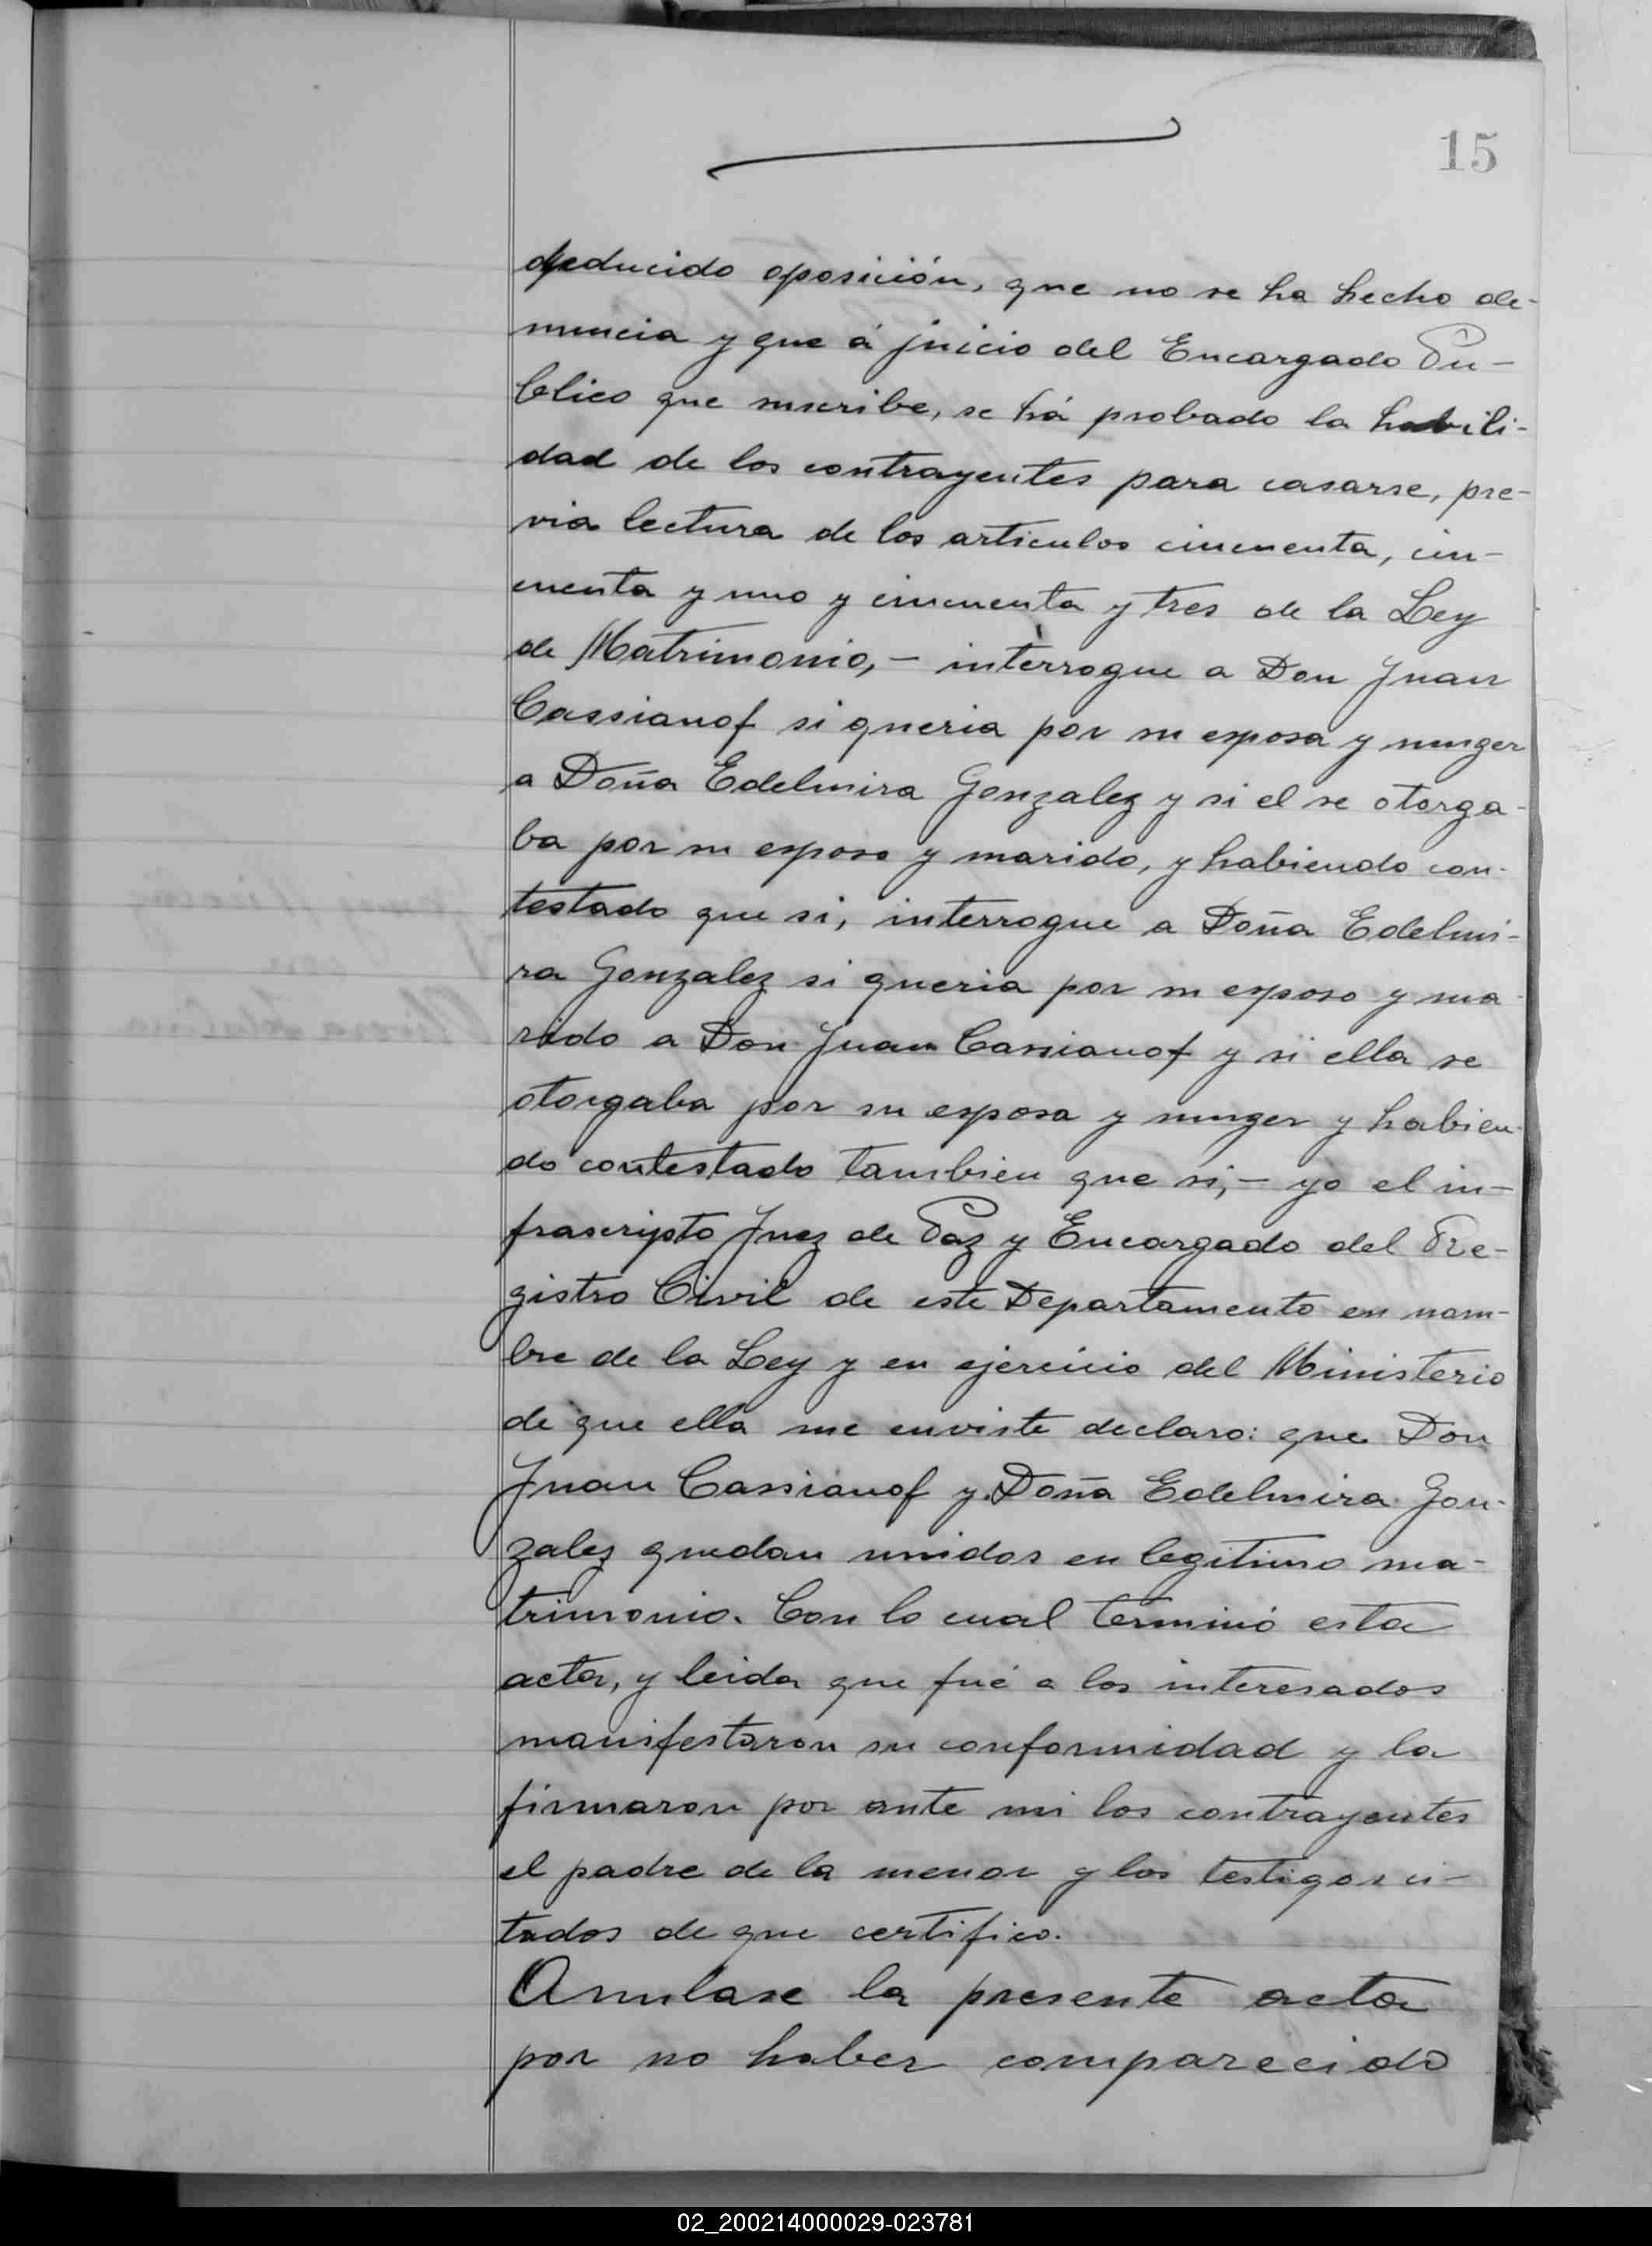 15
deducido oposición, que no se ha hecho de-
nuncia y que á juicio del Encargado Pú-
blico que suscribe, se há probado la habili-
dad de los contrayentes para casarse, pre-
via lectura de los articulos cincuenta, cin-
cuenta y uno y cincuenta y tres de la Ley
de Matrimonio, - interrogue a Don Juan
Cassianof si queria por su esposa y muger
a Doña Edelmira Gonzalez y si el se otorga-
ba por su esposo y marido, y habiendo con-
testado que si, interrogue a Doña Edelmi-
ra Gonzalez si queria por su esposo y ma-
rido a Don Juan Cassianof y si ella se
otorgaba por su esposa y muger y habien-
do contestado tambien que si, - yo el in-
frascripto Juez de Paz y Encargado del Re-
gistro Civil de este Departamento en nom-
bre de la Ley y en ejercicio del Ministerio
de que ella me enviste declaro: que Don
Juan Cassianof y Doña Edelmira Gon-
zalez quedan unidos en legitimo ma-
trimonio. Con lo cual terminó esta
acta, y leida que fué a los interesados
manifestaron su conformidad y la
firmaron por ante mi los contrayentes
el padre de la menor y los testigos ci-
tados de que certifico.
Anulase la presente acta
por no haber comparecido
02_200214000029-023781